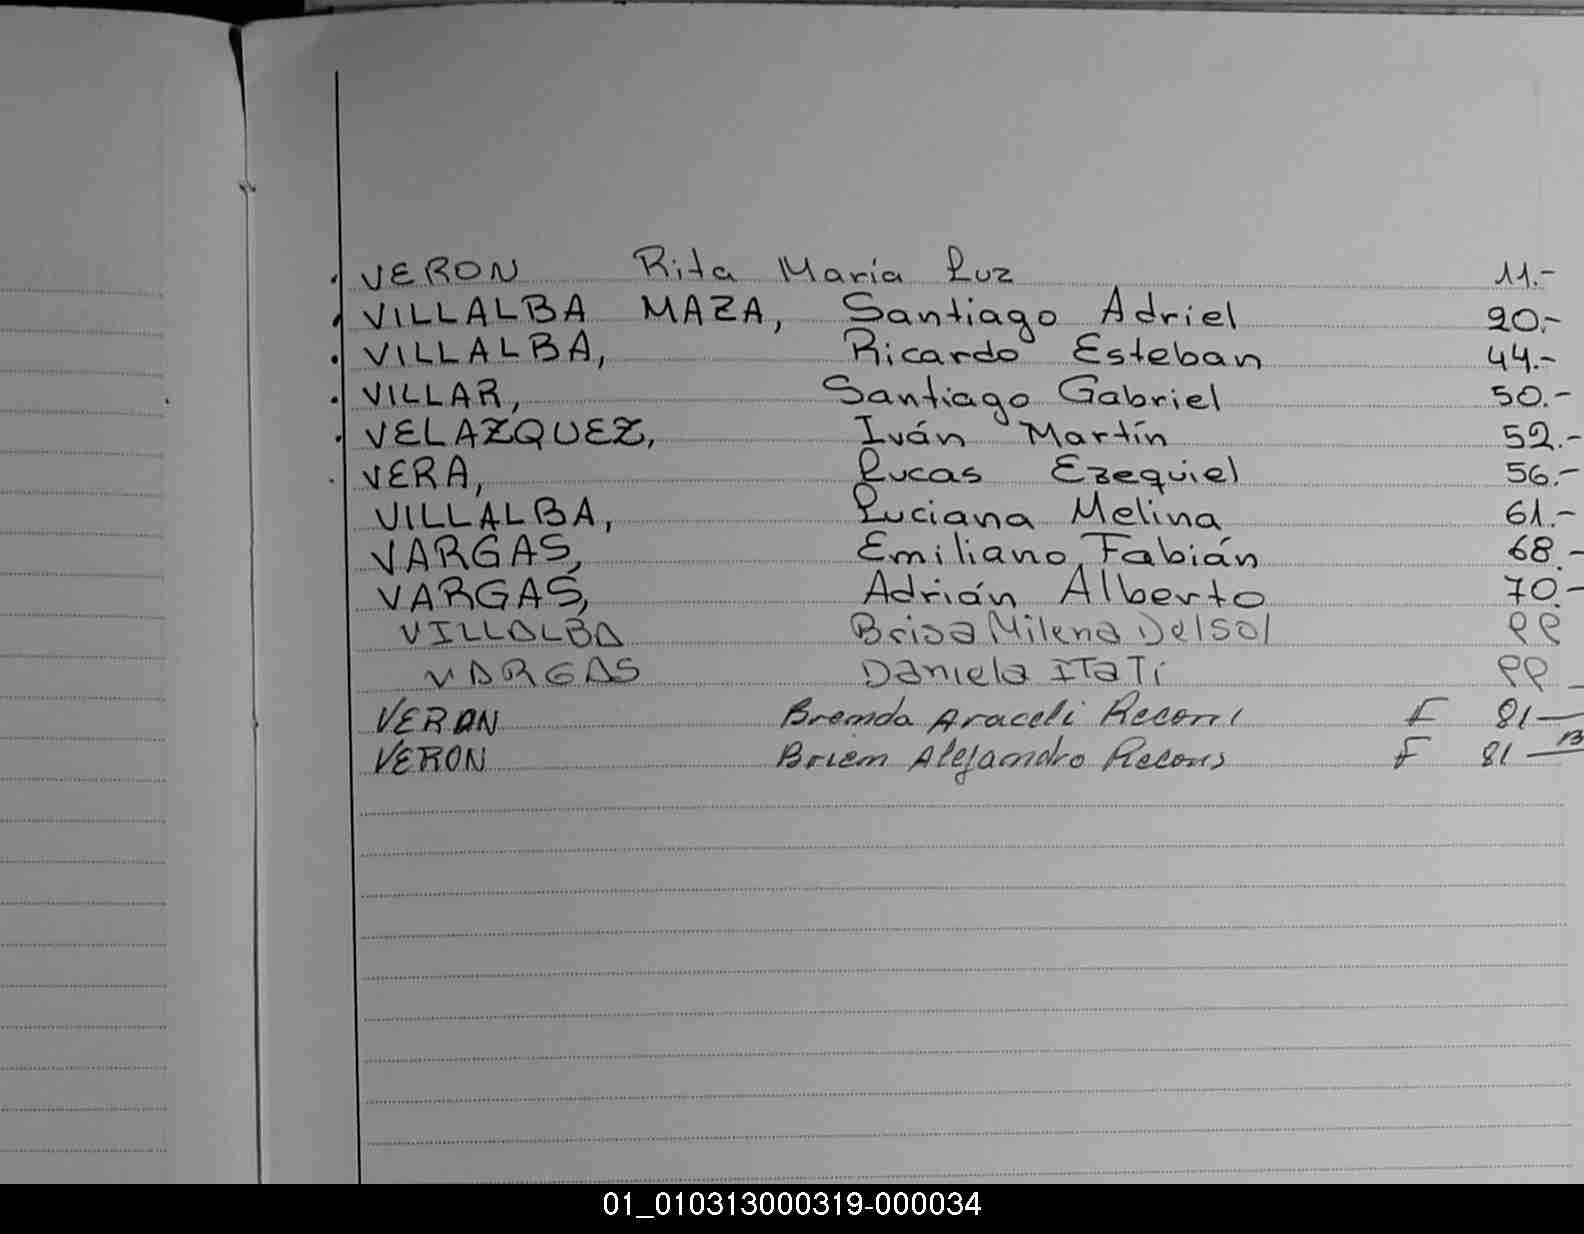 VERON Rita María Luz 11.-
VILLALBA MAZA, Santiago Adriel 20.-
VILLALBA, Ricardo Esteban 44.-
VILLAR, Santiago Gabriel 50.-
VELAZQUEZ, Iván Martín 52.-
VERA, Lucas Ezequiel 56.-
VILLALBA, Luciana Melina 61.-
VARGAS, Emiliano Fabián 68.-
VARGAS, Adrián Alberto 70.-
VILLALBA Brisa Milena Delsol
VARGAS Daniela ITaTí
VERON Brenda Araceli F 81-
VERON Alejandro F 81-B
01_010313000319-000034